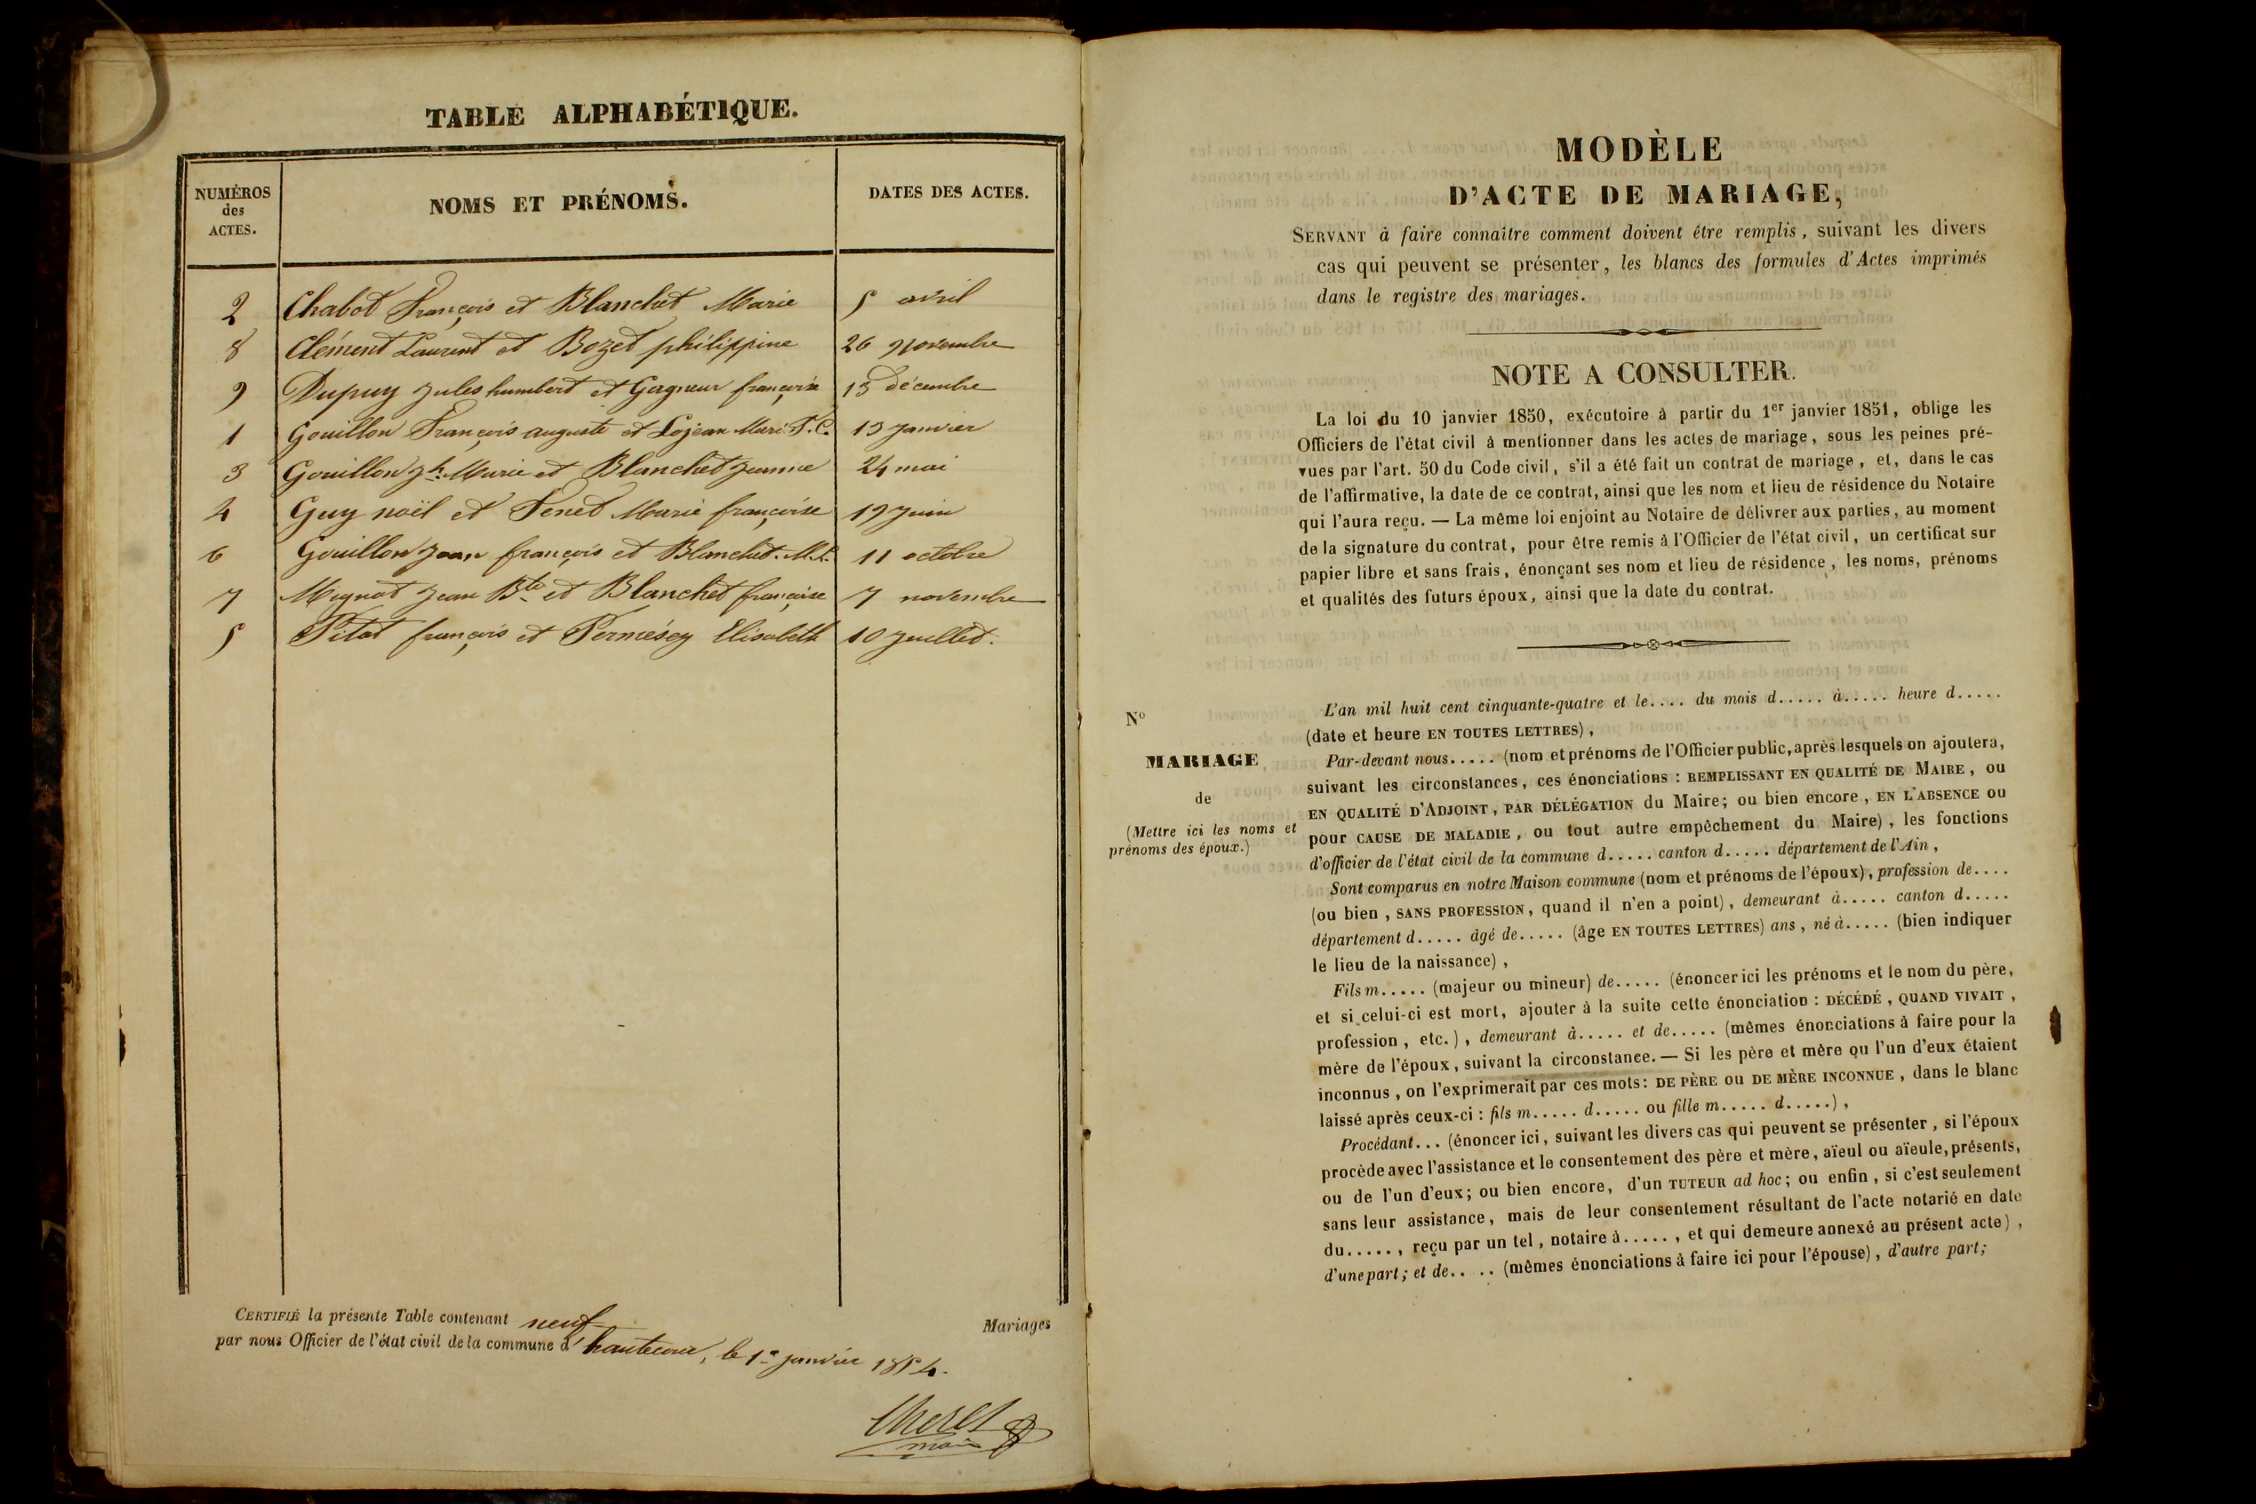 TABLE ALPHABÉTIQUE.
NUMÉROS des ACTES. NOMS ET PRÉNOMS. DATES DES ACTES.
2 Chabot François et Blanchet Marie 5 avril
8 Clément Laurent et Bozet philippine 26 Novembre
9 Dupuy Jules humbert et Gagneur françoise 13 décembre
1 Gouillon François auguste et Lojean Marie F. C. 19 Janvier
3 Gouillon Jh. Marie et Blanchet Jeanne 24 mai
4 Guy noël et Fenet Marie françoise 19 Juin
6 Gouillon Jean françois et Blanchet. 11 octobre
7 Mignot Jean Bte et Blanchet françoise 7 novembre
5 Pitat françois et Permésey Elisabeth 10 Juillet.
CERTIFIÉ la présente Table contenant neuf Mariages
par nous Officier de l'état civil de la commune d'hautecour, le 1er janvier 1854.
maire
MODÈLE
D'ACTE DE MARIAGE,
SERVANT à faire connaître comment doivent être remplis, suivant les divers
cas qui peuvent se présenter, les blancs des formules d'Actes imprimés
dans le registre des mariages.
NOTE A CONSULTER.
La loi du 10 janvier 1850, exécutoire à partir du 1er janvier 1851, oblige les
Officiers de l'état civil à mentionner dans les actes de mariage, sous les peines pré-
vues par l'art. 50 du Code civil, s'il a été fait un contrat de mariage, et, dans le cas
de l'affirmative, la date de ce contrat, ainsi que les nom et lieu de résidence du Notaire
qui l'aura reçu. — La même loi enjoint au Notaire de délivrer aux parties, au moment
de la signature du contrat, pour être remis à l'Officier de l'état civil, un certificat sur
papier libre et sans frais, énonçant ses nom et lieu de résidence, les noms, prénoms
et qualités des futurs époux, ainsi que la date du contrat.
No
MARIAGE
de
(Mettre ici les noms et
prénoms des époux.)
L'an mil huit cent cinquante-quatre et le.... du mois d..... à..... heure d.....
(date et heure EN TOUTES LETTRES),
Par-devant nous..... (nom et prénoms de l'Officier public, après lesquels on ajoutera,
suivant les circonstances, ces énonciations : REMPLISSANT EN QUALITÉ DE MAIRE, ou
EN QUALITÉ D'ADJOINT, PAR DÉLÉGATION du Maire; ou bien encore, EN L'ABSENCE ou
pour CAUSE DE MALADIE, ou tout autre empêchement du Maire), les fonctions
d'officier de l'état civil de la commune d..... canton d..... département de l'Ain,
Sont comparus en notre Maison commune (nom et prénoms de l'époux), profession de....
(ou bien, SANS PROFESSION, quand il n'en a point), demeurant à..... canton d.....
département d..... âgé de..... (âge EN TOUTES LETTRES) ans, né à..... (bien indiquer
le lieu de la naissance),
Fils m..... (majeur ou mineur) de..... (énoncer ici les prénoms et le nom du père,
et si celui-ci est mort, ajouter à la suite cette énonciation : DÉCÉDÉ, QUAND VIVAIT,
profession, etc.), demeurant à..... et de..... (mêmes énonciations à faire pour la
mère de l'époux, suivant la circonstance. — Si les père et mère ou l'un d'eux étaient
inconnus, on l'exprimerait par ces mots: DE PÈRE ou DE MÈRE INCONNUE, dans le blanc
laissé après ceux-ci : fils m..... d..... ou fille m..... d.....),
Procédant... (énoncer ici, suivant les divers cas qui peuvent se présenter, si l'époux
procède avec l'assistance et le consentement des père et mère, aïeul ou aïeule, présents,
ou de l'un d'eux; ou bien encore, d'un TUTEUR ad hoc; ou enfin, si c'est seulement
sans leur assistance, mais de leur consentement résultant de l'acte notarié en date
du....., reçu par un tel, notaire à....., et qui demeure annexé au présent acte),
d'une part; et de.. .. (mêmes énonciations à faire ici pour l'épouse), d'autre part;